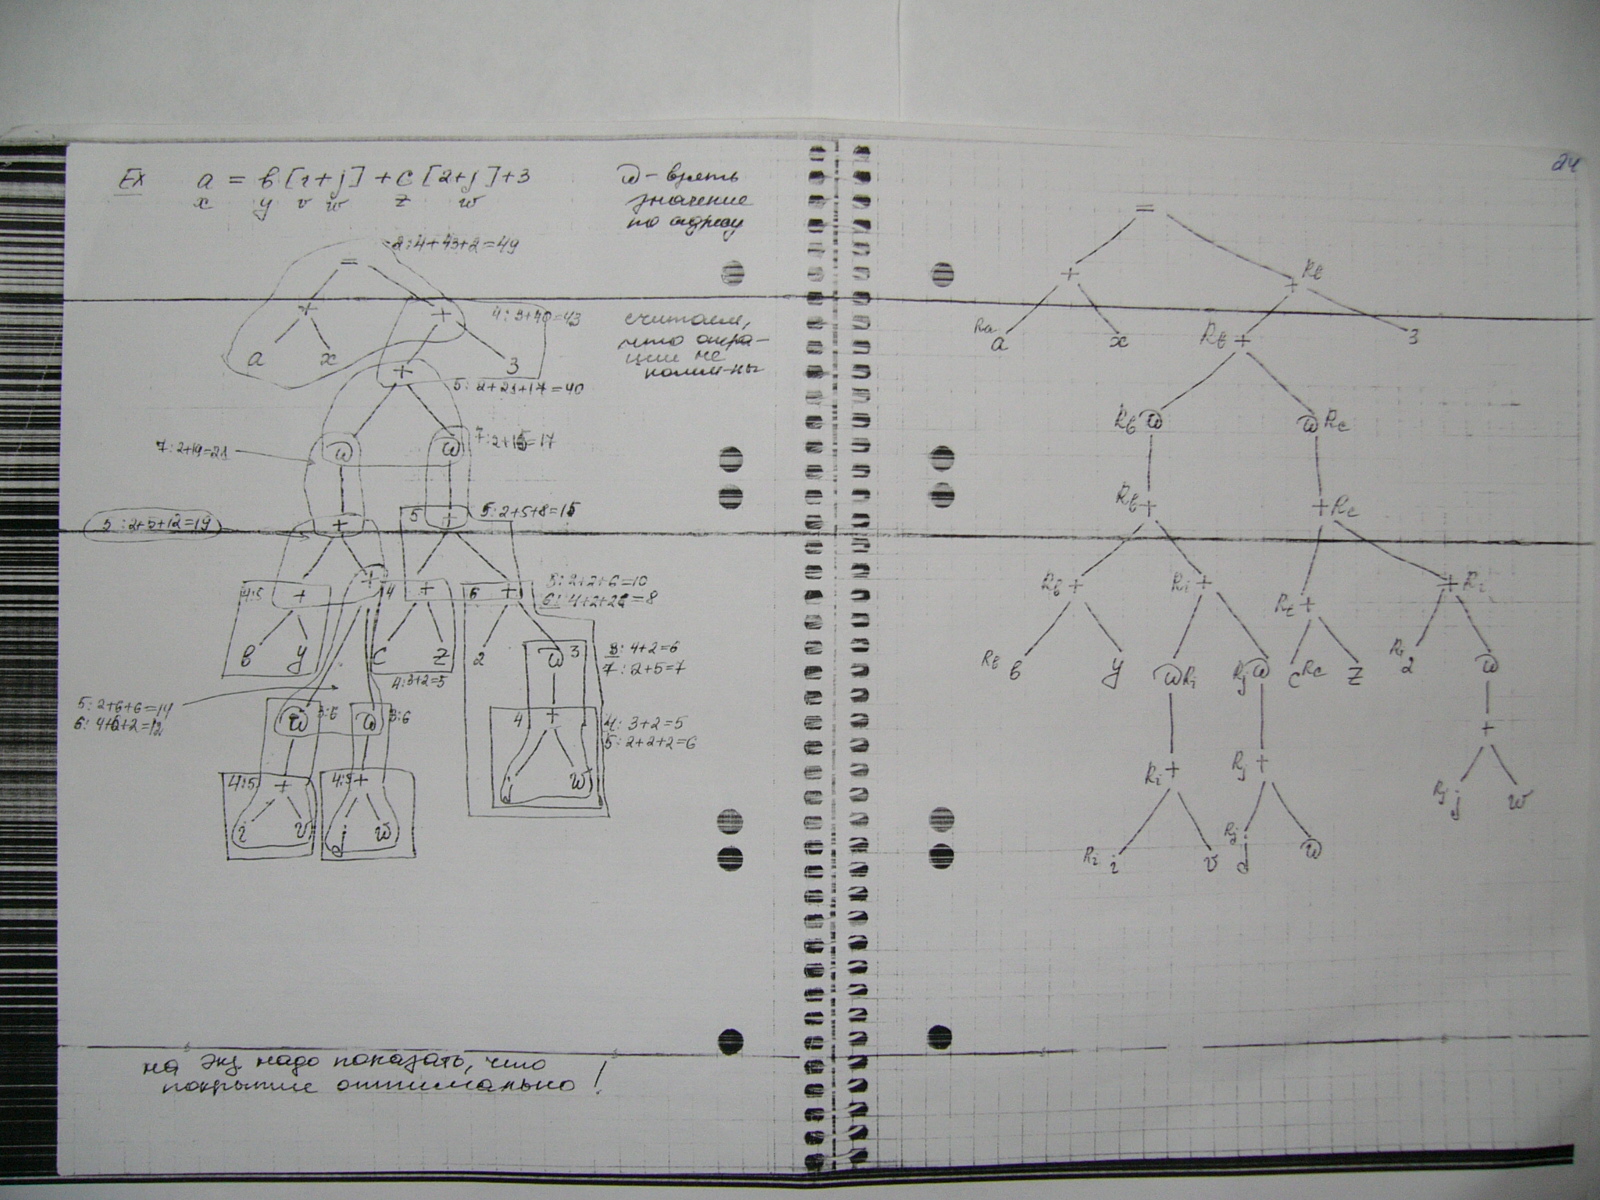 24
Ex a = b[i+j]+c[2+j]+3
x y v w z w
@ - взять
значение
по адресу
2:4+43+2=49
=
+
+
4:3+40=43
a
x
+
3
считаем,
что опера-
ции не
комм-ны
5: 2+21+17=40
7:2+19=21
@
@
7:2+15=17
5:2+5+12=19
+
5
+
5:2+5+8=15
4:5
+
+
4
+
6
+
5:2+2+6=10
6: 4+2+2=8
b
y
c
z
2
@
3
3: 4+2=6
7: 2+5=7
4:3+2=5
5: 2+6+6=14
6: 4+6+2=12
@
3:6
@
3:6
4
+
4: 3+2=5
5: 2+2+2=6
4:5
+
4:5
+
j
w
i
v
j
w
на экз надо показать, что
покрытие оптимально!
=
+
Rb
+
Ra
a
x
Rb +
3
Rb @
@ Rc
Rb +
+ Rc
Rb +
Ri +
Rc +
+ Ri
Rb b
y
@ Ri
Rj @
c Rc
z
2
@
Ri +
Rj +
+
Rj j
w
Ri i
v
Rj
j
w